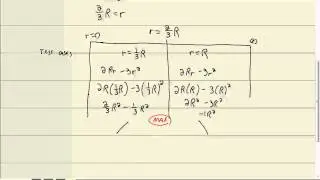 2/3 R = r
r = 2/3 R
r=0 ∞
Test cases r = 1/3 R r = R
2Rr - 3r² 2Rr - 3r²
2R(1/3 R) - 3(1/3 R)² 2R(R) - 3(R)²
2/3 R² - 1/3 R² 2R² - 3R²
-1R²
MAX